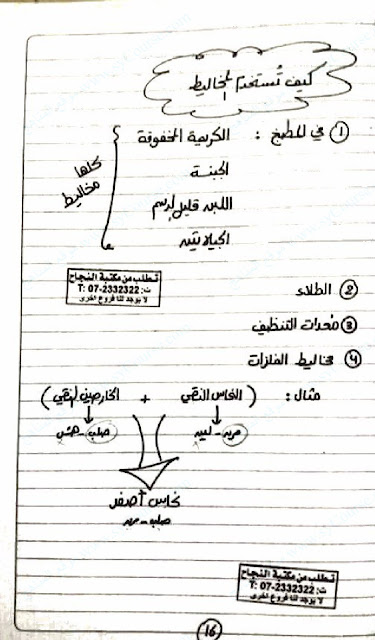 كيف تُستخدم المخاليط
① في المطبخ : الكريمة المخفوقة
الجبنة
اللبن قليل الدسم
الجيلاتين
كلها مخاليط
تطلب من مكتبة النجاح
ت: 07-2332322 :T
لا يوجد لنا فروع اخرى
② الطلاء
③ معدات التنظيف
④ مخاليط الفلزات
مثال : (النحاس النقي + الخارصين النقي)
مرن - لين
صلب - هش
نحاس أصفر
صلب - مرن
تطلب من مكتبة النجاح
ت: 07-2332322 :T
لا يوجد لنا فروع اخرى
16